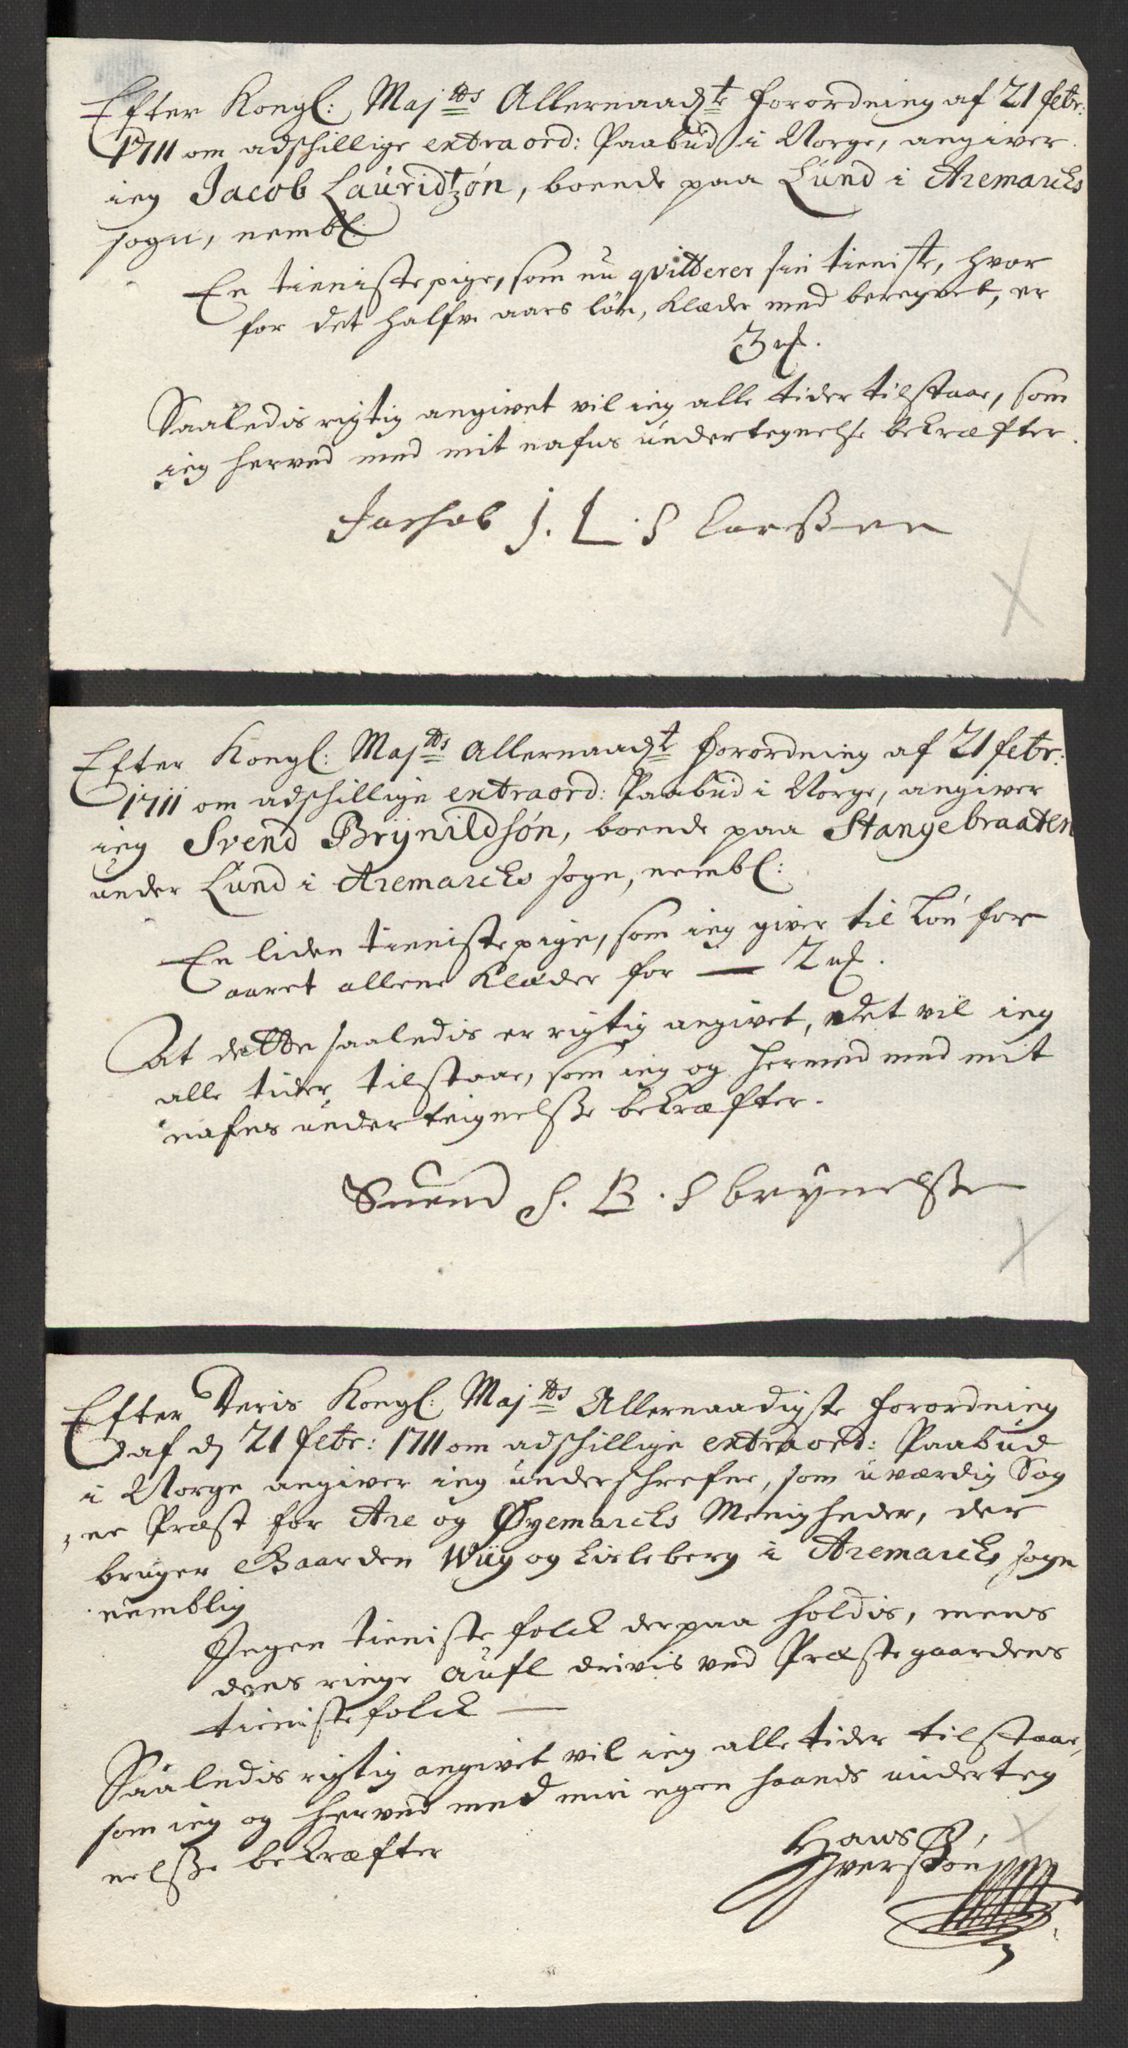 Efter Kongl: Maj:tts Allernaad:te forordning af 21 febr:
1711 om adschillige extraord: Paabud i Norge, angiver
ieg Jacob Lauridtzón, boende paa Lund i Aremarcks
sogn, nembl:
En tienistepige, som nu qvitterer sin tieniste, hvor
for det halfve aars lön, klæder med beregnet, er
3 rd.
Saaledis rigtig angivet vil ieg alle tider tilstaae, som
ieg herved med mit nafns undertegnelse bekræfter.
Jachob J. L. S Larssen
Efter Kongl: Maj:tts Allernaad:te forordning af 21 febr:
1711 om adschillige extraord: Paabud i Norge, angiver
ieg Svend Brynildsón, boende paa Stangebraaten
under Lund i Aremarcks sogn, nembl:
En liden tienistepige, som ieg giver til lön for
aaret allene klæder for — 2 rd.
At dette saaledis er rigtig angivet, det vil ieg
alle tider tilstaae, som ieg og hermed med mit
nafns underteignelsse bekræfter.
Suend S. B. S brynelsse
Efter Deris Kongl: Maj:tts Allernaadigste forordning
af d 21 febr: 1711 om adschillige extraord: Paabud
i Norge angiver ieg underschrefne, som uværdig Sog
ne Præst for Are og Øyemarcks Menigheder, der
bruger Gaarden Wiig og Lisleberg i Aremarcks sogn
nemblig
Ingen tieniste folck derpaa holdis, mens
dens ringe aufl drivis ved Præstegaardens
tienistefolck —
Saaledis rigtig angivet vil ieg alle tider tilstaae,
som ieg og herved med min egen haands underteg
nelsse bekræfter
Hans
Iverssön